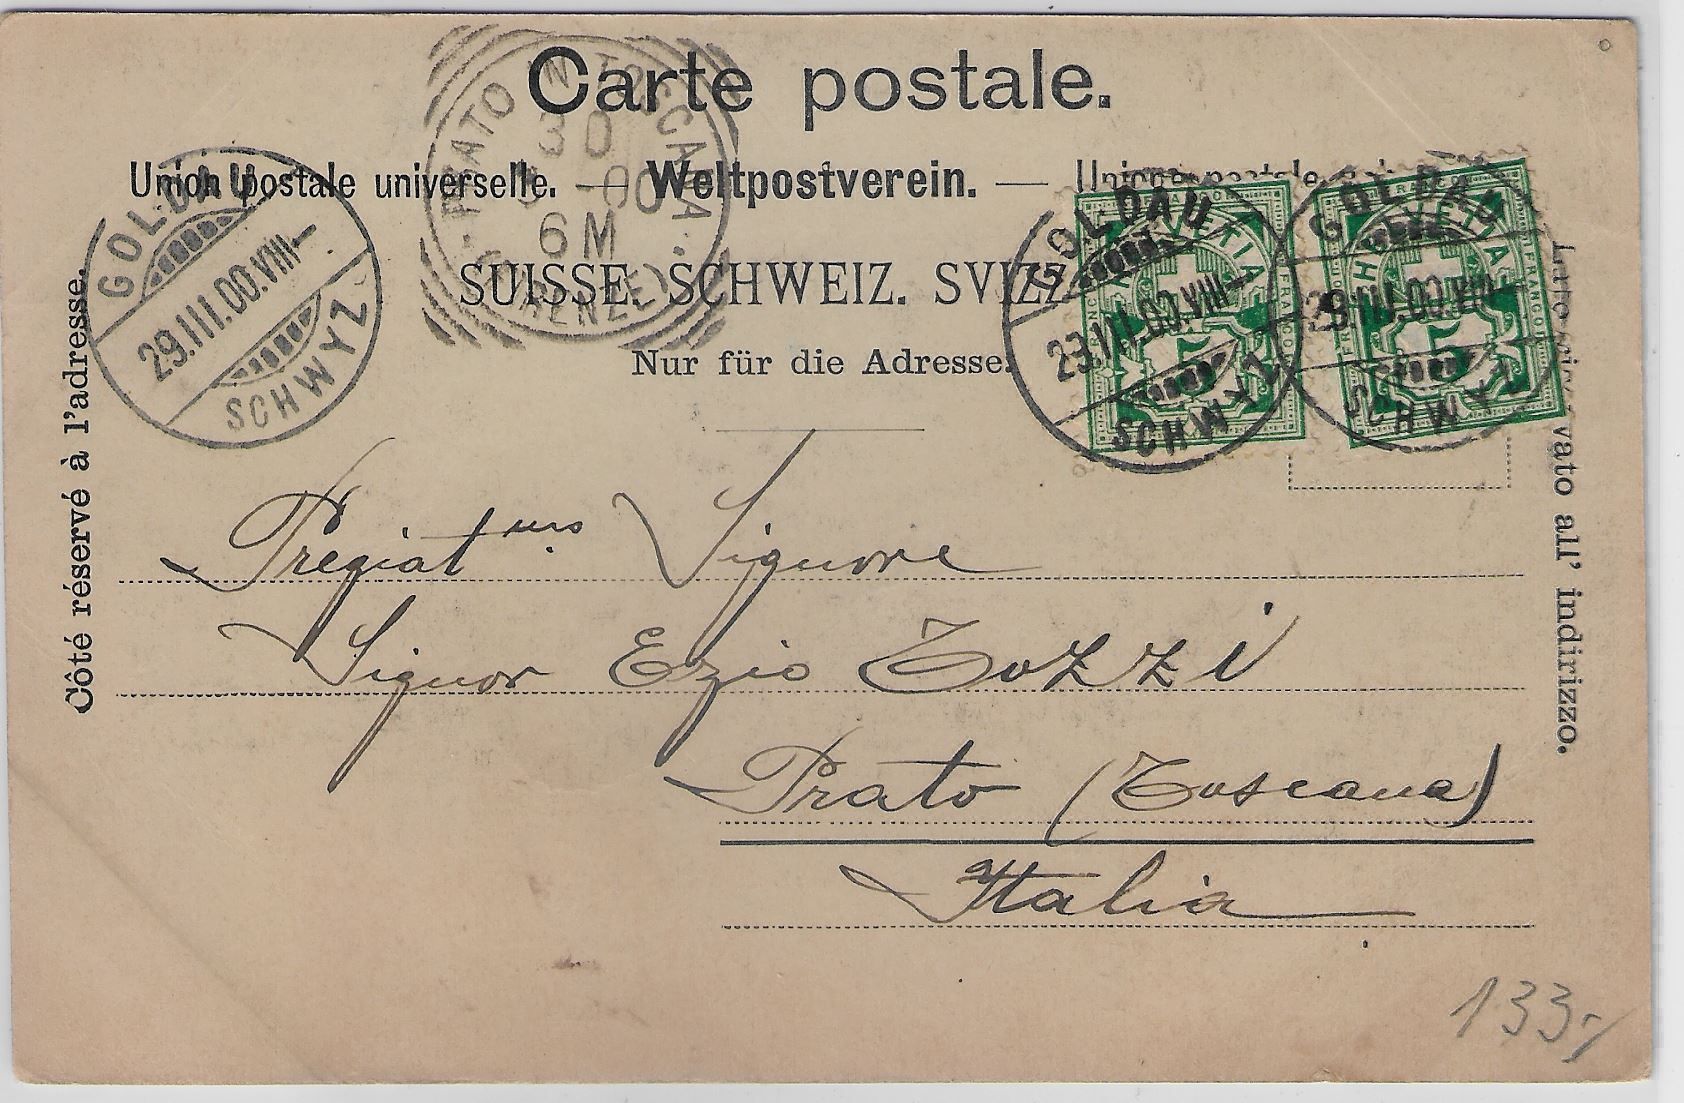 Carte postale.
Union postale universelle. — Weltpostverein. — Unione postale
SUISSE. SCHWEIZ. SVIZZ
Nur für die Adresse.
Côté réservé à l'adresse.
Lato riservato all' indirizzo.
PRATO IN TOSCANA
30
-00
6 M
(FIRENZE)
GOLDAU
29.III.00.VIII—
SCHWYZ
GOLDAU
29.III.00.VIII—
SCHWYZ
GOLDAU
29.III.00.VIII
SCHWYZ
HELVETIA
FRANCO
5
HELVETIA
FRANCO
5
Pregiat.mo Signore
Signor Ezio Tozzi
Prato (Toscana)
Italia
133.-